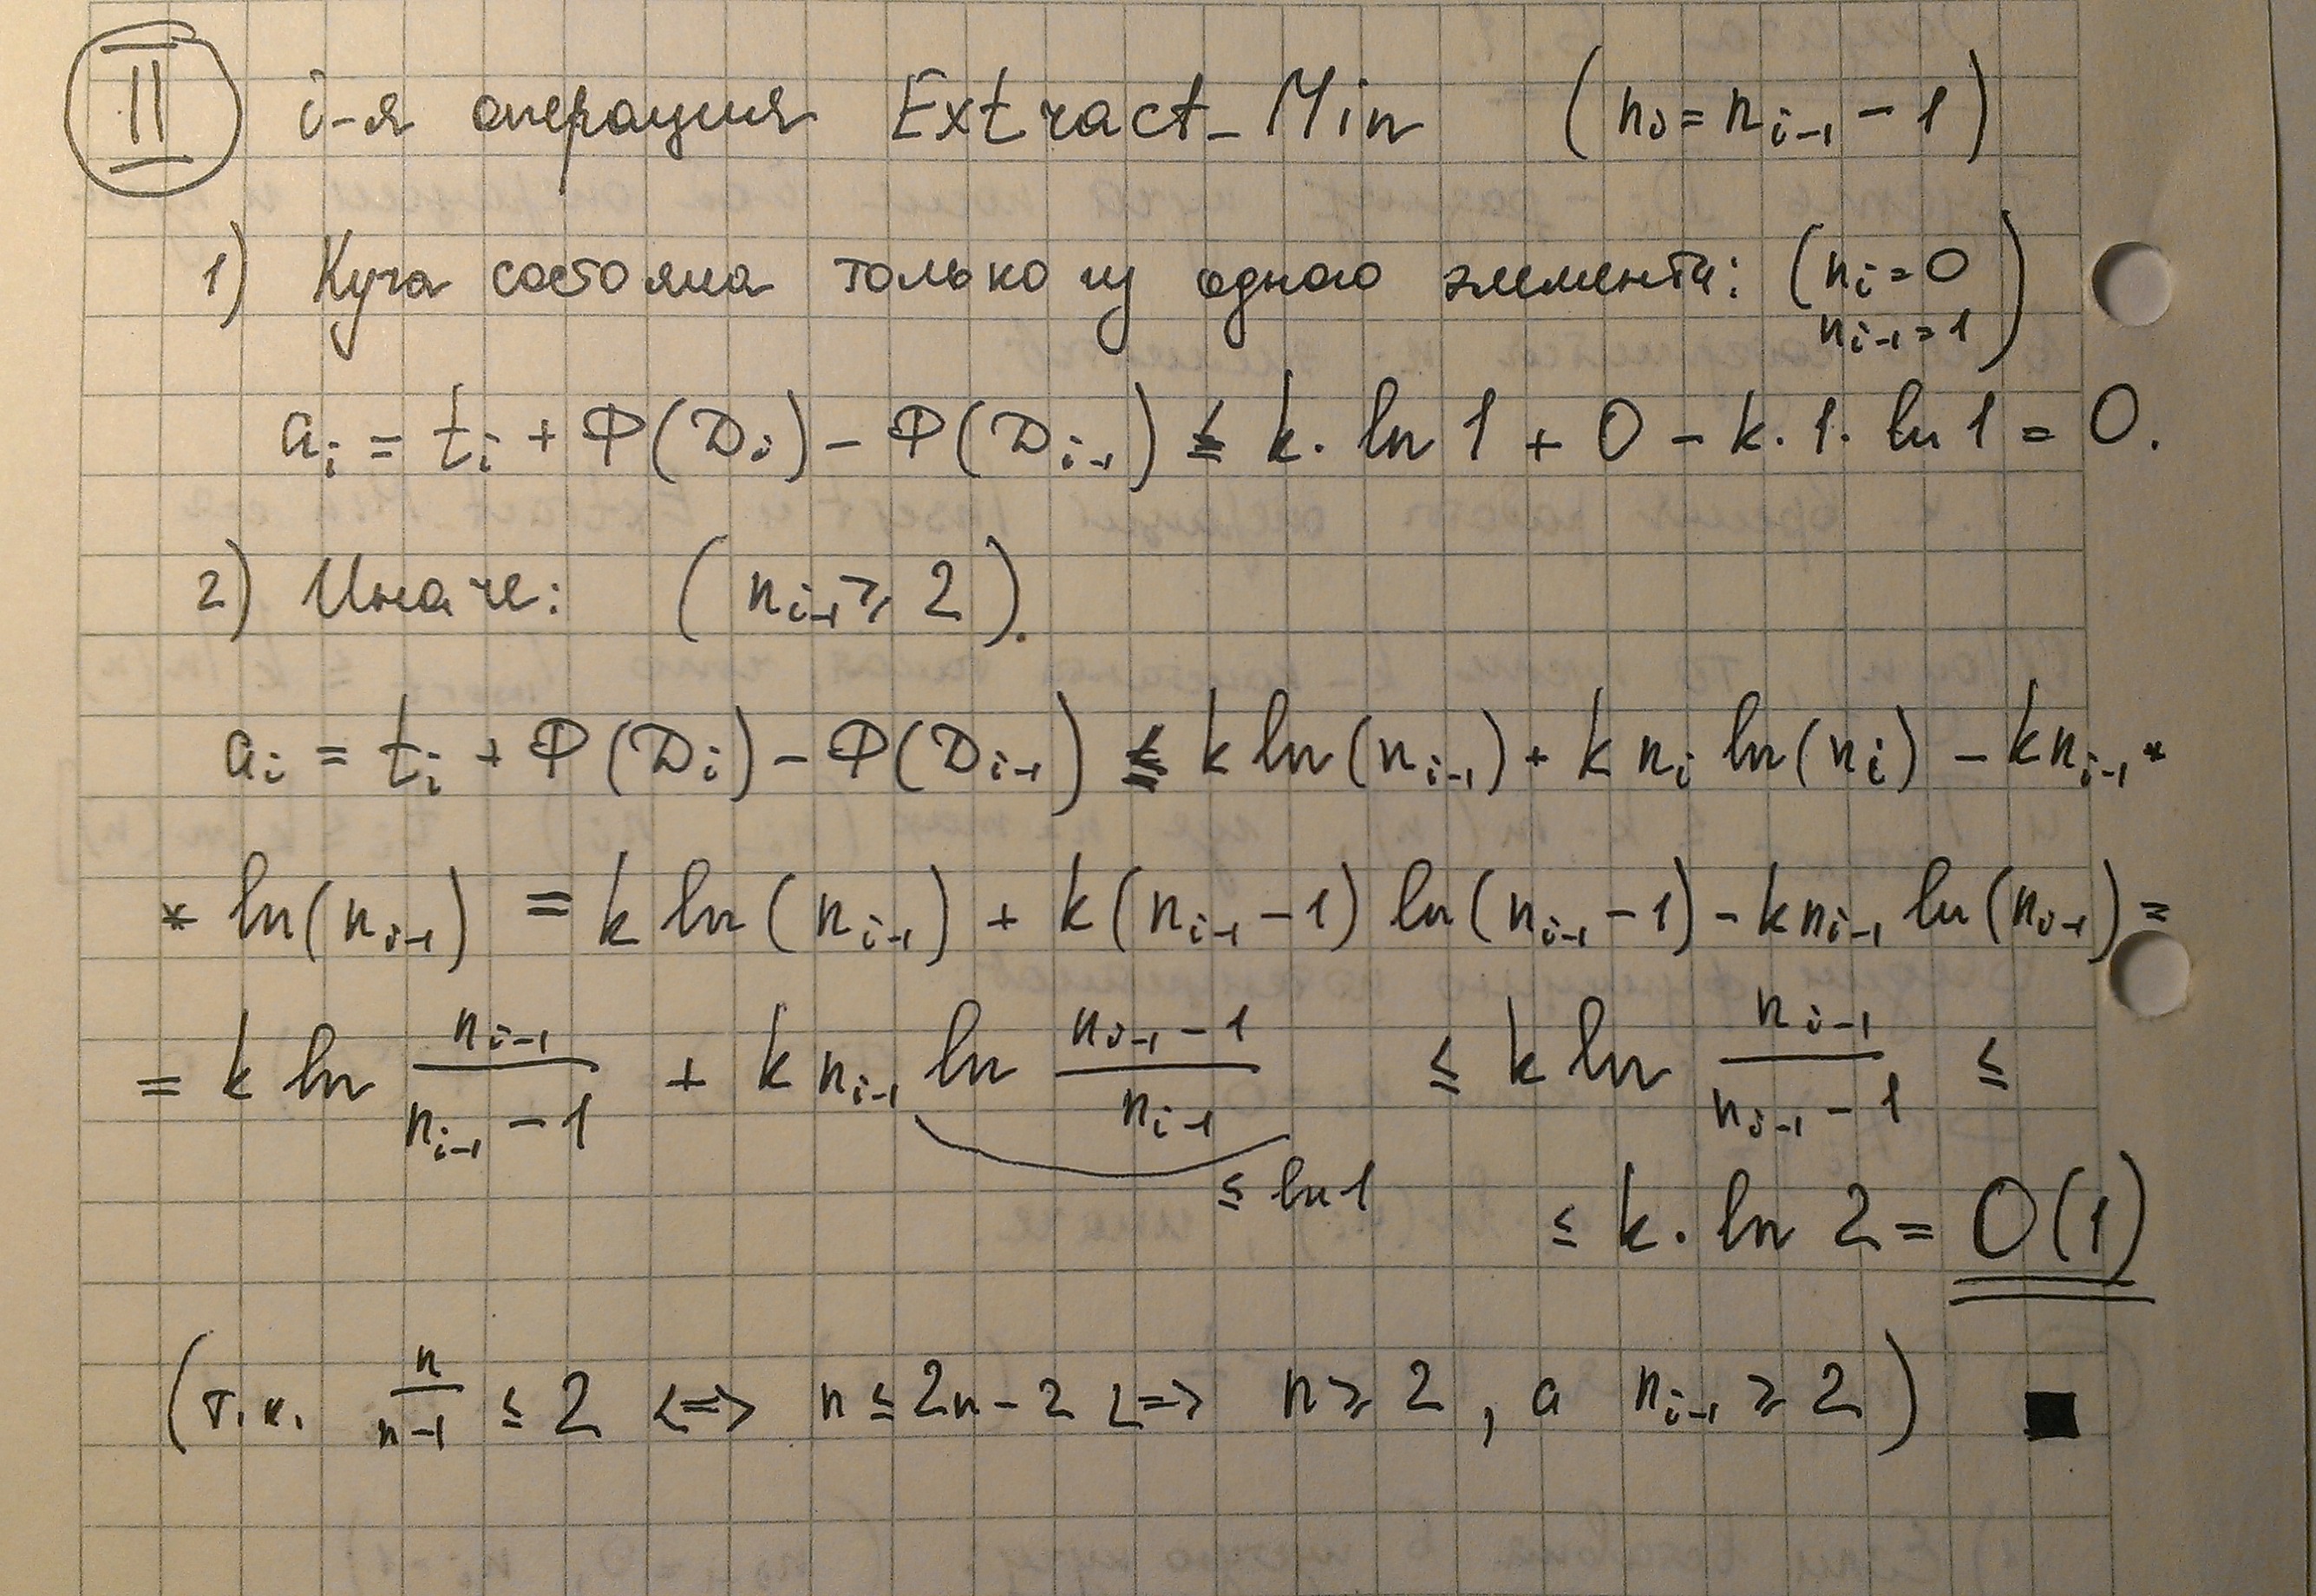 II i-я операция Extract_Min (nᵢ = nᵢ₋₁ − 1)
1) Куча состояла только из одного элемента: (nᵢ = 0
nᵢ₋₁ = 1)
aᵢ = tᵢ + Φ(Dᵢ) − Φ(Dᵢ₋₁) ≤ k · ln 1 + 0 − k · 1 · ln 1 = 0.
2) Иначе: (nᵢ₋₁ ⩾ 2).
aᵢ = tᵢ + Φ(Dᵢ) − Φ(Dᵢ₋₁) ≤ k ln(nᵢ₋₁) + k nᵢ ln(nᵢ) − knᵢ₋₁ *
* ln(nᵢ₋₁) = k ln(nᵢ₋₁) + k(nᵢ₋₁ − 1) ln(nᵢ₋₁ − 1) − knᵢ₋₁ ln(nᵢ₋₁) =
= k ln nᵢ₋₁/(nᵢ₋₁ − 1) + k nᵢ₋₁ ln (nᵢ₋₁ − 1)/nᵢ₋₁ ≤ k ln nᵢ₋₁/(nᵢ₋₁ − 1) ≤
≤ ln 1 ≤ k · ln 2 = O(1)
(т.к. n/(n−1) ≤ 2 <=> n ≤ 2n − 2 <=> n ⩾ 2, а nᵢ₋₁ ⩾ 2) ■